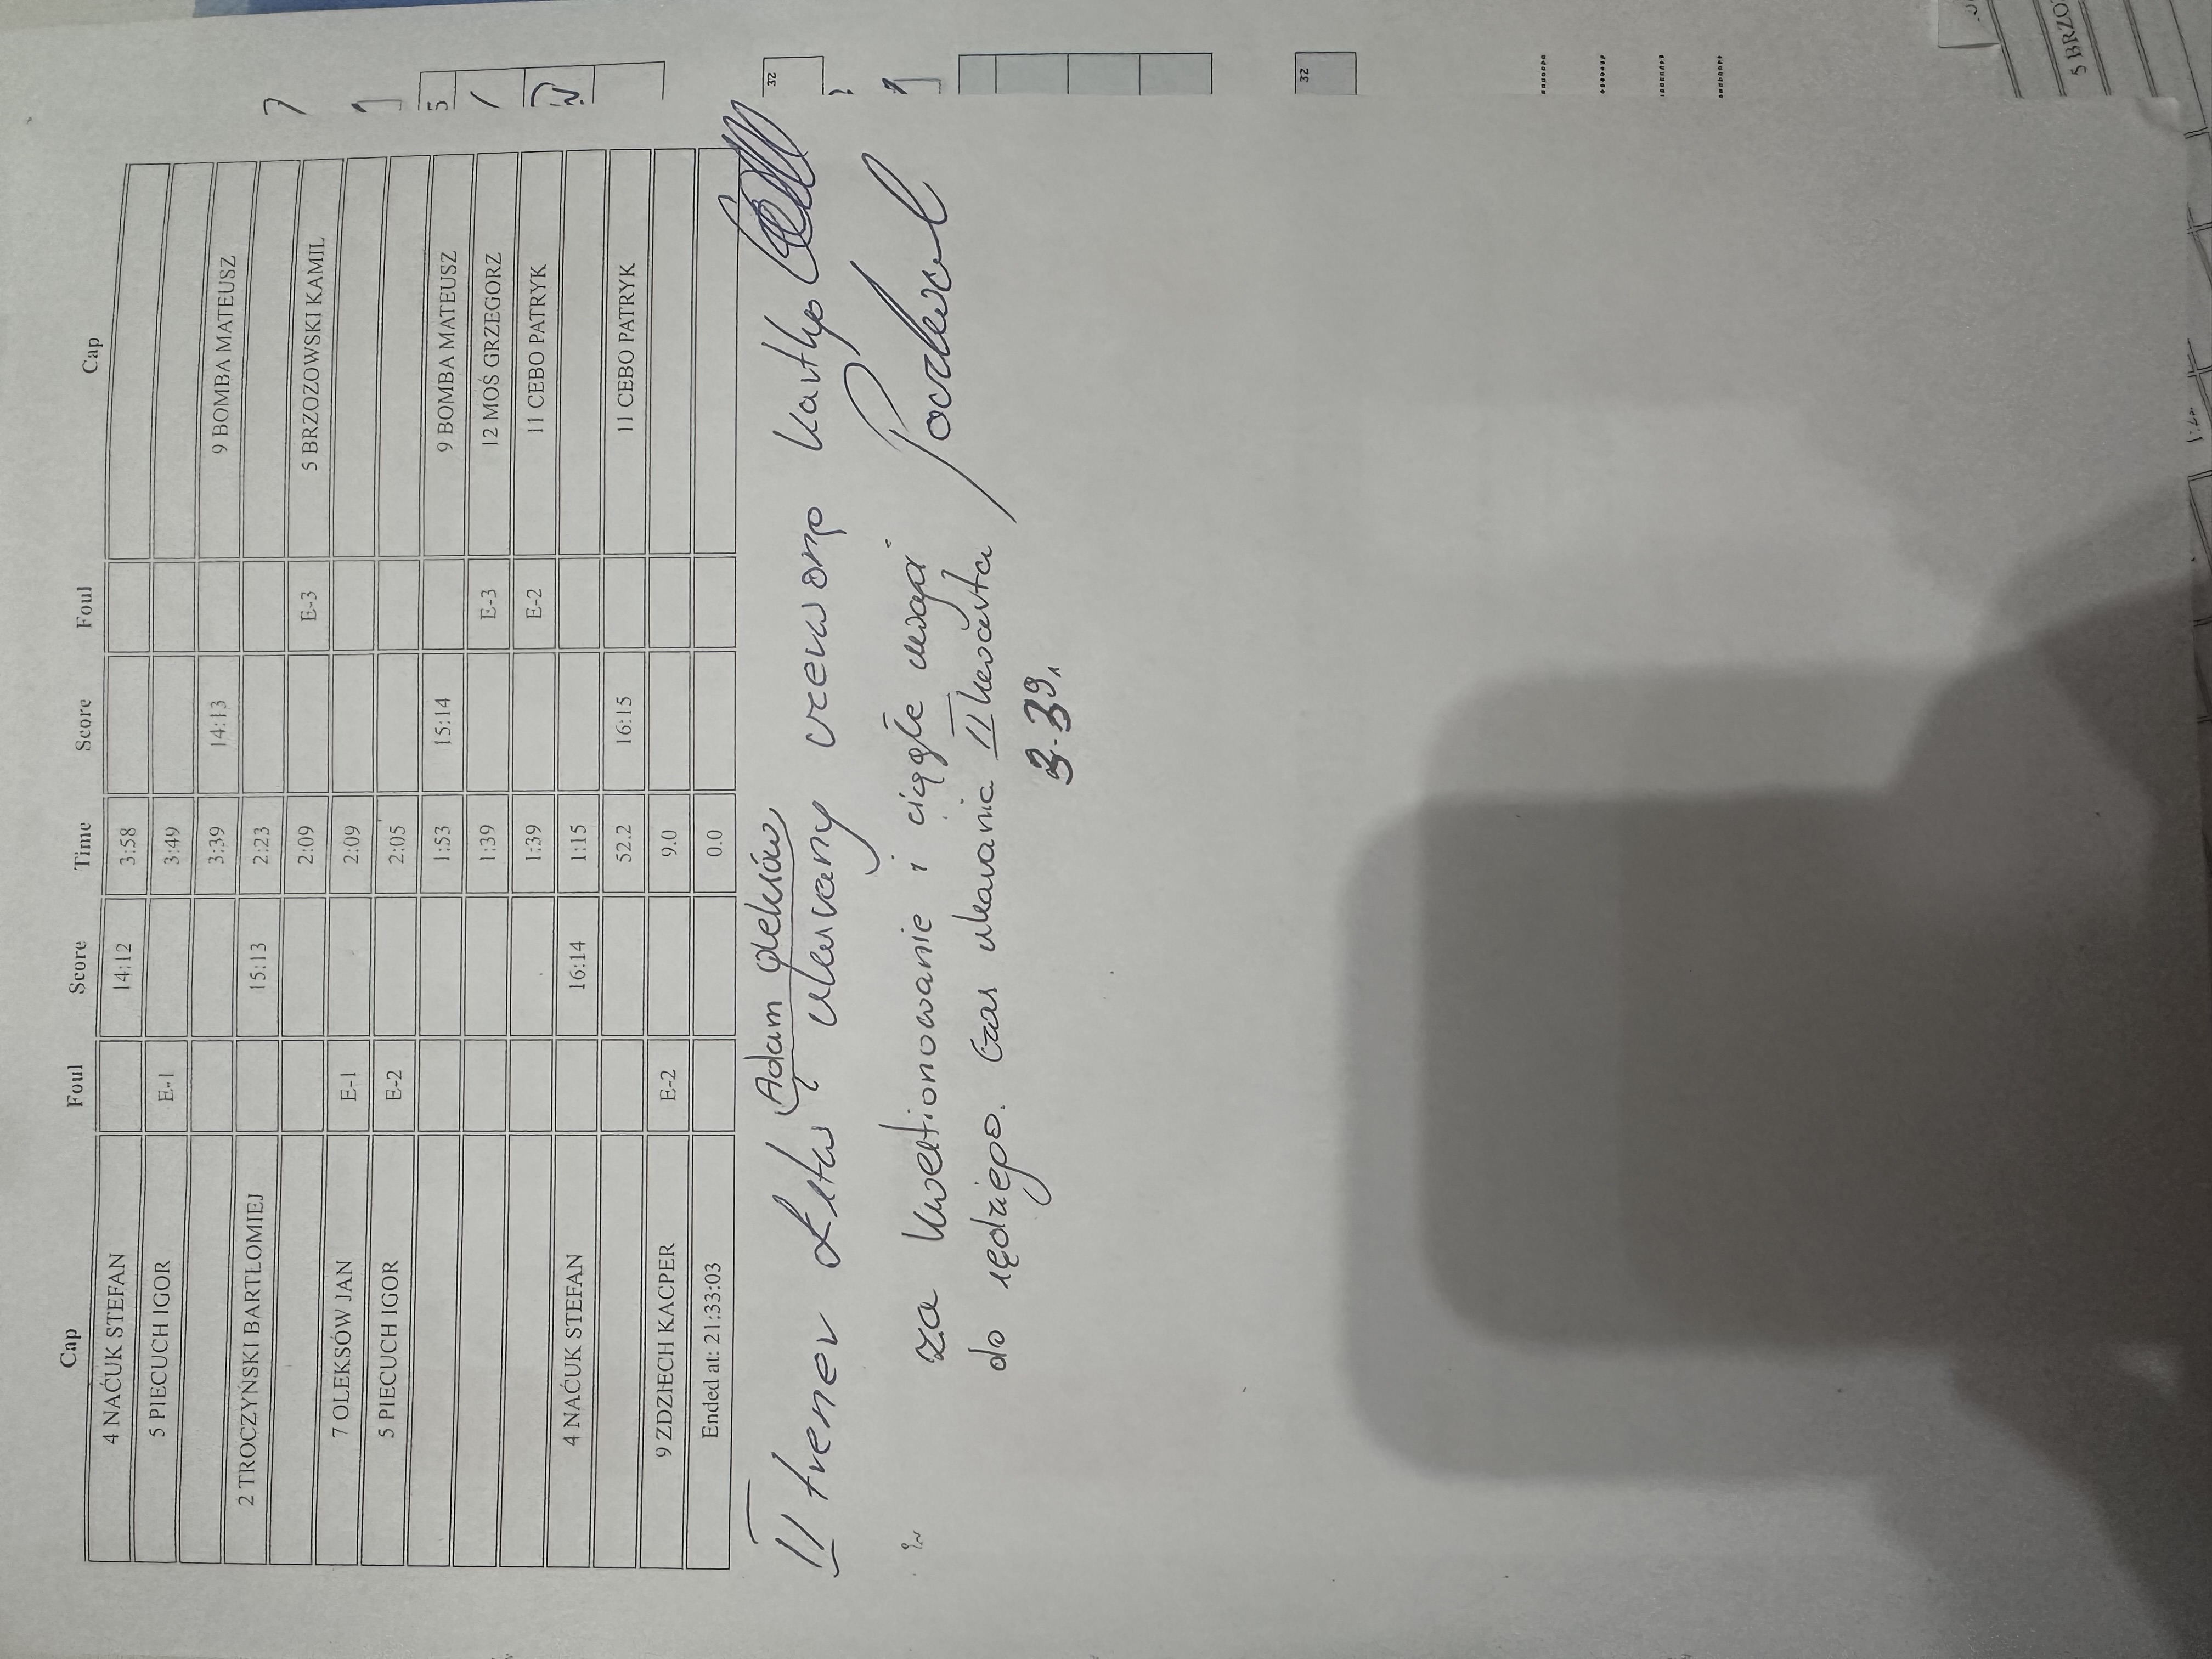 Cap Foul Score Time Score Foul Cap
4 NAĆUK STEFAN 14:12 3:58
5 PIECUCH IGOR E-1 3:49
3:39 14:13 9 BOMBA MATEUSZ
2 TROCZYŃSKI BARTŁOMIEJ 15:13 2:23
2:09 E-3 5 BRZOZOWSKI KAMIL
7 OLEKSÓW JAN E-1 2:09
5 PIECUCH IGOR E-2 2:05
1:53 15:14 9 BOMBA MATEUSZ
1:39 E-3 12 MOŚ GRZEGORZ
1:39 E-2 11 CEBO PATRYK
4 NAĆUK STEFAN 16:14 1:15
52.2 16:15 11 CEBO PATRYK
9 ZDZIECH KACPER E-2 9.0
Ended at: 21:33:03 0.0
Adam Oleksów
II trener ukarany czerwoną kartką
za kwestionowanie i ciągłe uwagi
do sędziego. Czas ukarania II kwarta
3.39.
5
32
32
5 BRZO